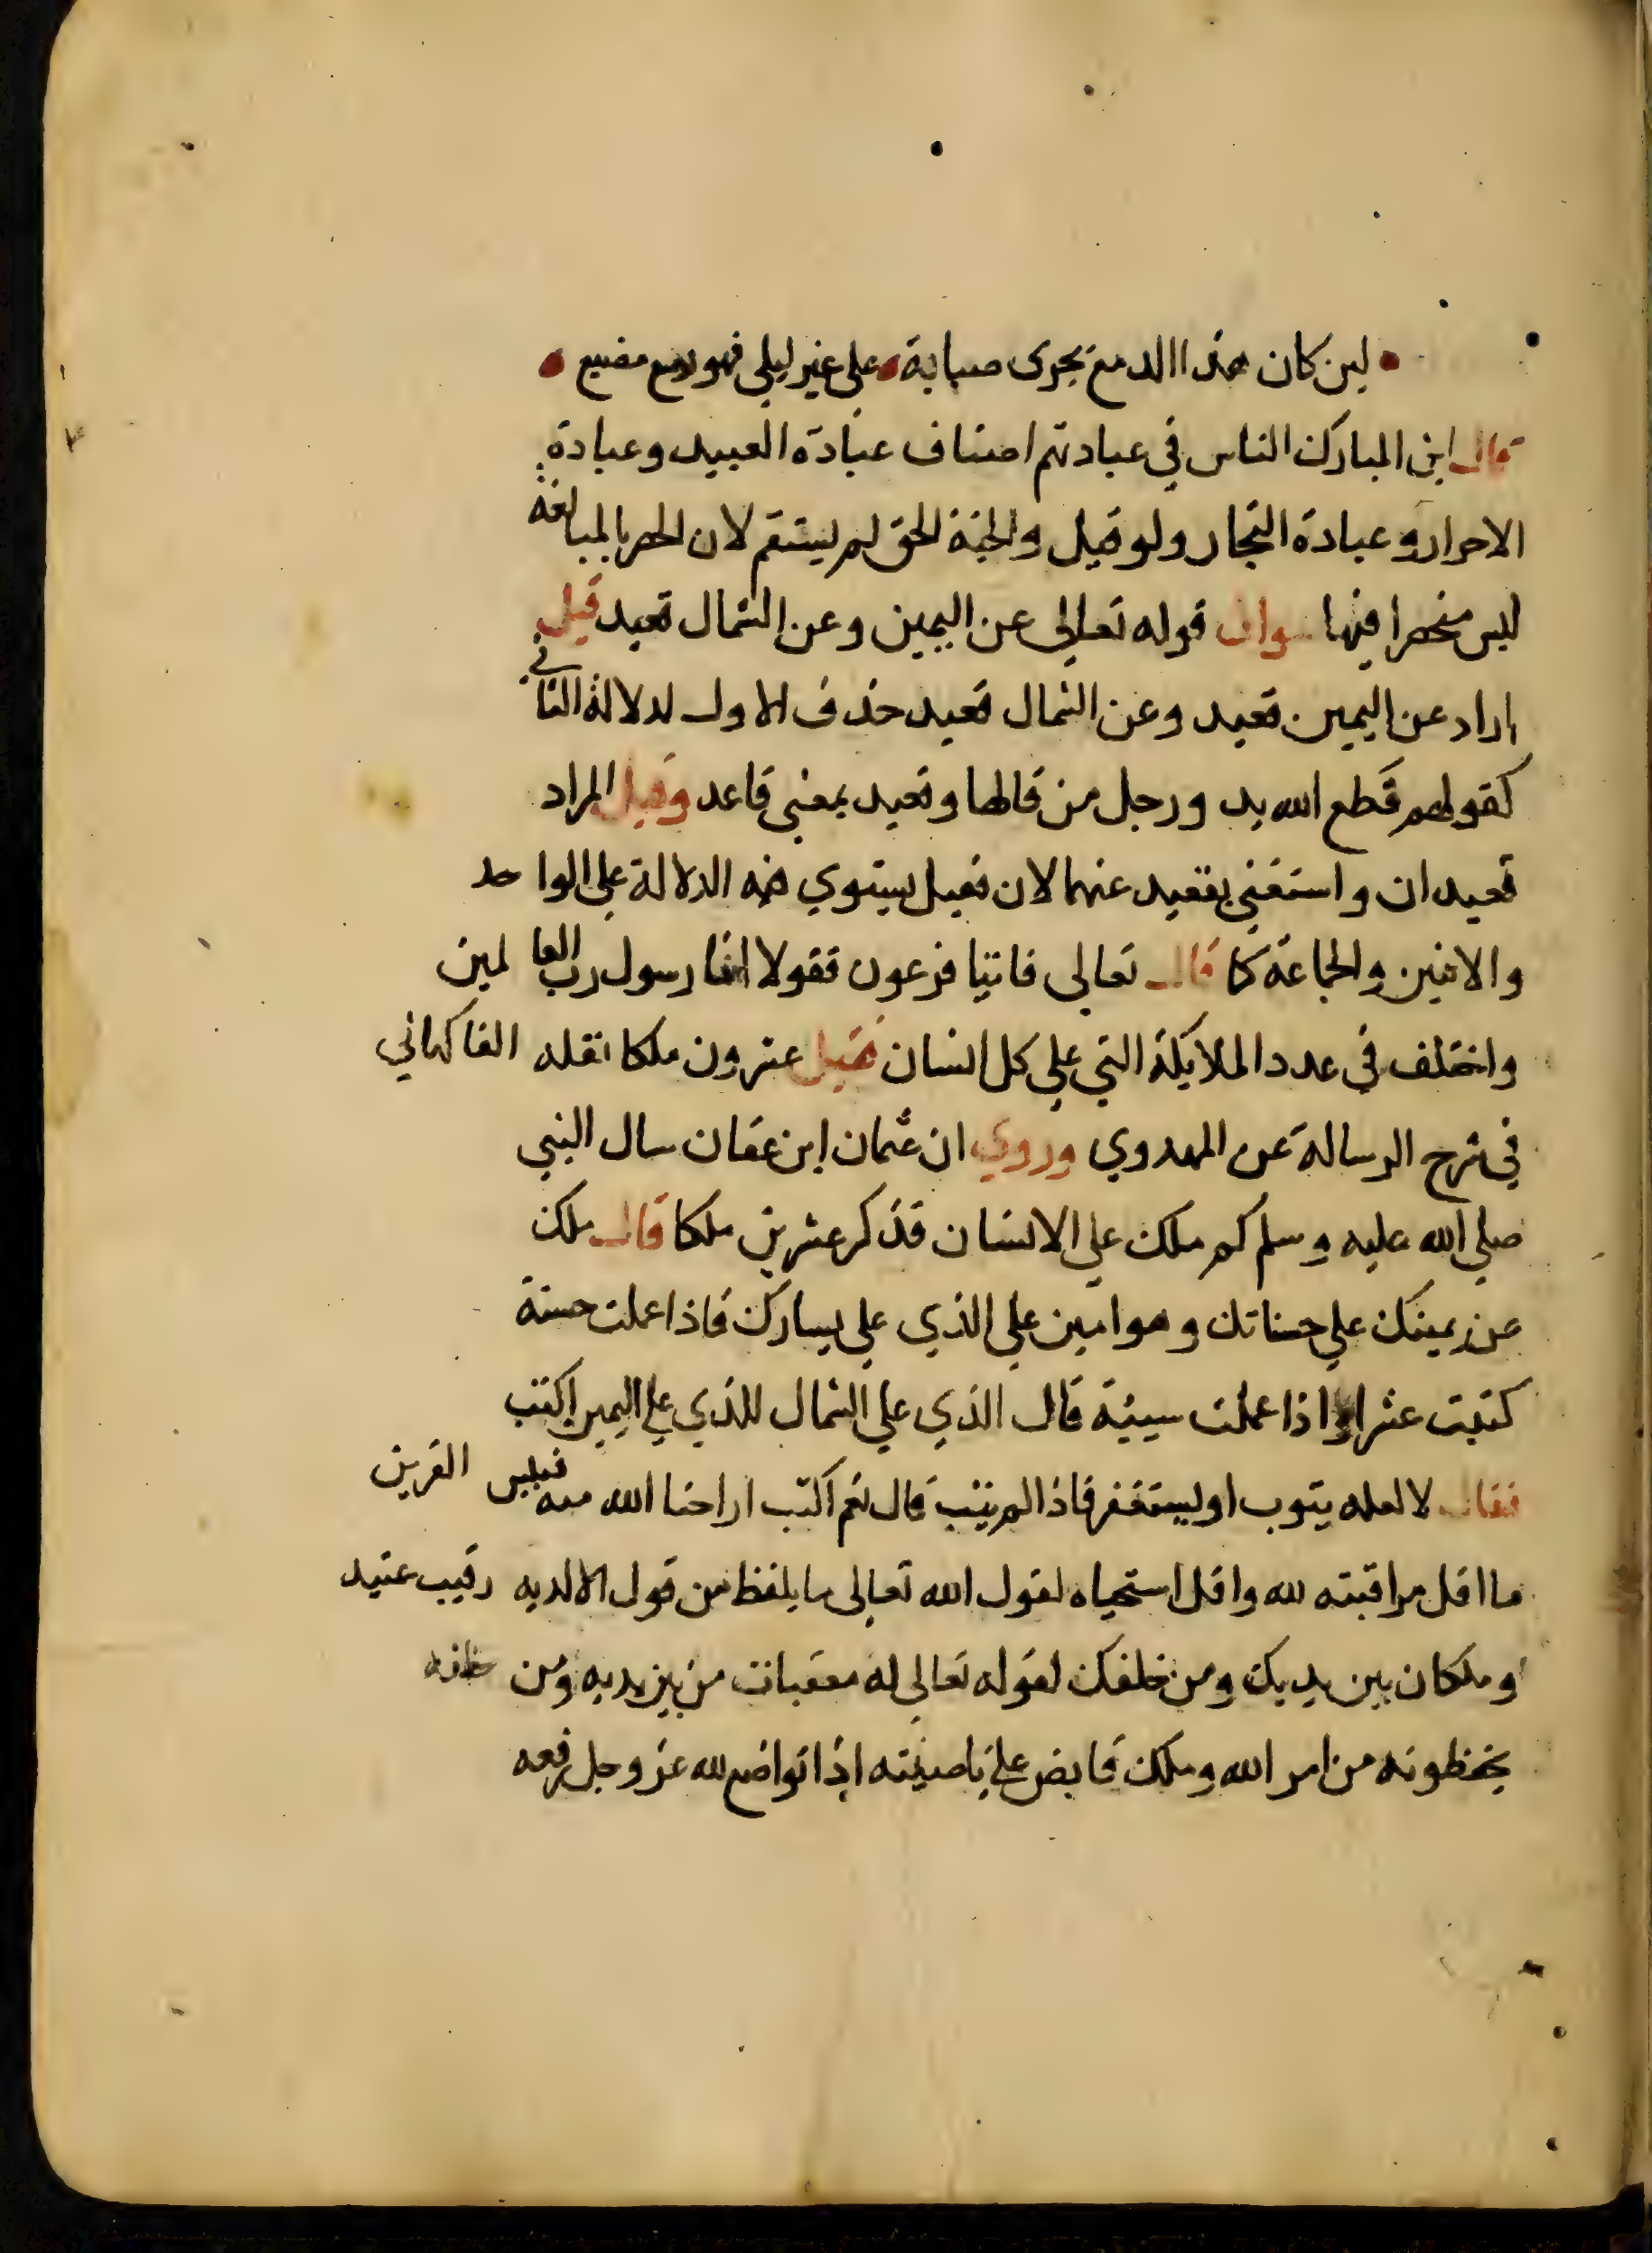 لين كان هذا الدمع يجرى صبابة على غير ليلى فهو دمع مضيع
قال ابن المبارك الناس في عبادتهم اصناف عبادة العبيد وعبادة
الاحرار وعبادة التجار ولو قيل والجنة الحق لم يستقم لان الحصر بالمبالغة
ليس منحصرا فيها سوال قوله تعالي عن اليمين وعن الشمال قعيد قيل
اراد عن اليمين قعيد وعن الشمال قعيد حذف الاول لدلالة الثاني
كقولهم قطع الله يد ورجل من قالها وقعيد بمعني قاعد وقيل المراد
قعيدان واستغني بقعيد عنهما لان فعيل يستوي فيه الدلالة علي الواحد
والاثنين والجماعة كما قال تعالى فاتيا فرعون فقولا انا رسول رب العالمين
واختلف في عدد الملايكة التي علي كل انسان فقيل عشرون ملكا نقله الفاكهاني
في شرح الرسالة عن المهدوي وروي ان عثمان ابن عفان سال النبي
صلي الله عليه وسلم كم ملك علي الانسان فذكر عشرين ملكا قال ملك
عن يمينك علي حسناتك وهو امين علي الذي علي يسارك فاذا عملت حسنة
كتبت عشرا واذا عملت سيئة قال الذي علي الشمال للذي علي اليمين اكتب
فقال لا لعله يتوب او يستغفر فاذا لم يتب قال نعم اكتب اراحنا الله منه فبيس القرين
ما اقل مراقبته لله واقل استحياه لقول الله تعالى ما يلفظ من قول الا لديه رقيب عتيد
وملكان بين يديك ومن خلفك لقوله تعالى له معقبات من بين يديه ومن خلفه
يحفظونه من امر الله وملك قابض علي ناصيته اذا تواضع لله عز وجل رفعه